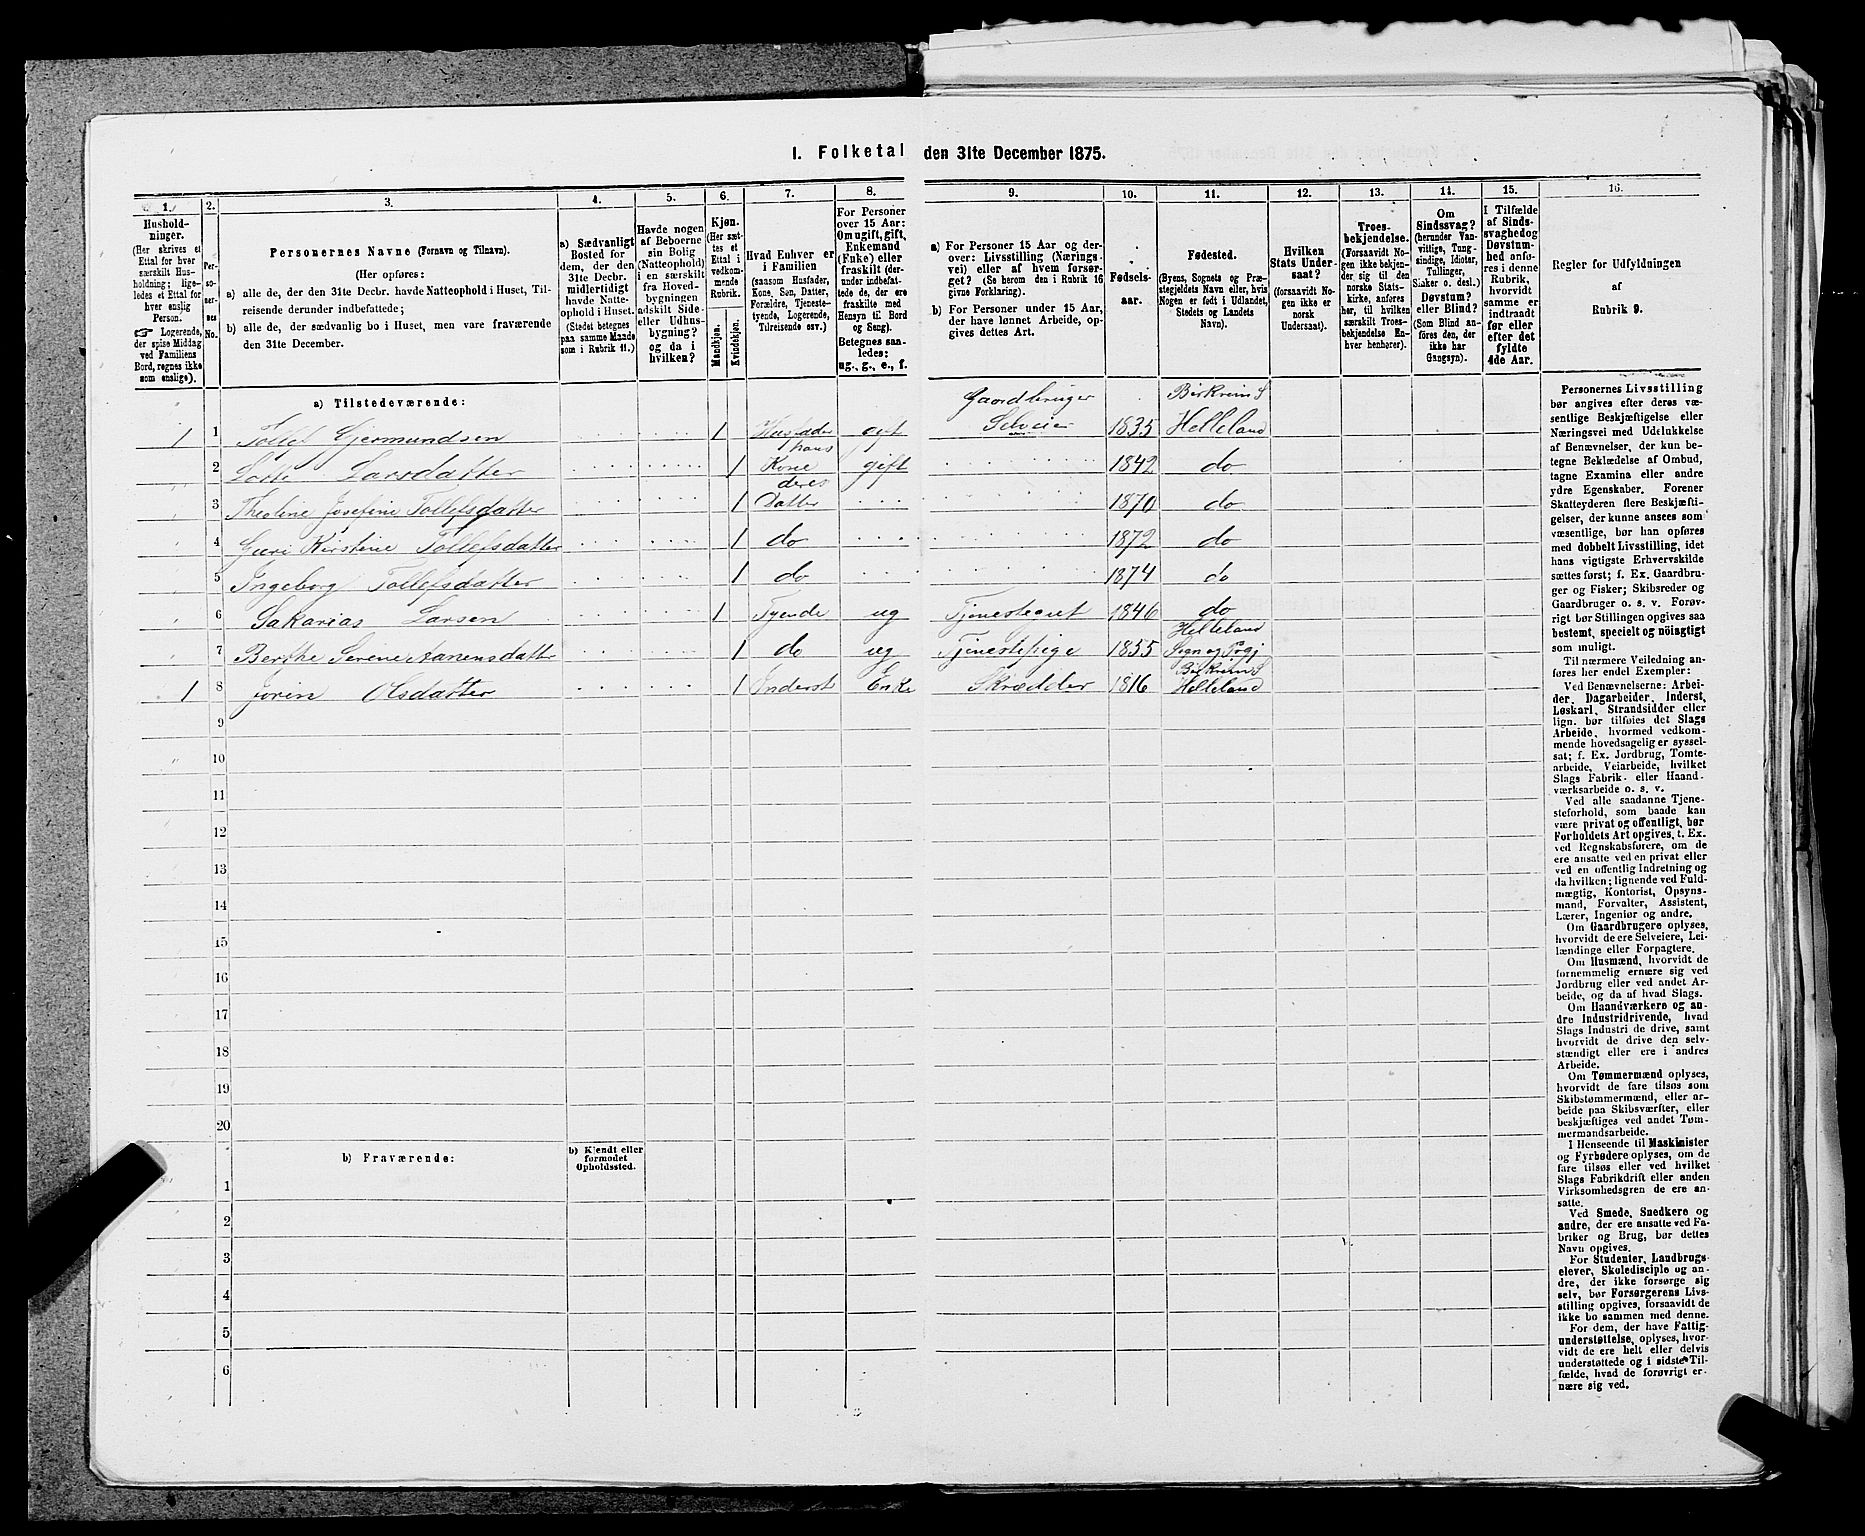 1. Folketal den 31te December 1875.
1. 2. 3. 4. 5. 6. 7. 8. 9. 10. 11. 12. 13. 14. 15. 16.
Hushold-
ninger.
(Her skrives et
Ettal for hver
særskilt Hus-
holdning; lige-
ledes et Ettal for
hver enslig
Person.
☞ Logerende,
der spise Middag
ved Familiens
Bord, regnes ikke
som enslige).
Personernes No.
Personernes Navne (Fornavn og Tilnavn).
(Her opføres:
a) alle de, der den 31te Decbr. havde Natteophold i Huset, Til-
reisende derunder indbefattede;
b) alle de, der sædvanlig bo i Huset, men vare fraværende
den 31te December.
a) Sædvanligt
Bosted for
dem, der den
31te Decbr.
midlertidigt
havde Natte-
ophold i Huset.
(Stedet betegnes
paa samme Maade
som i Rubrik 11.)
Havde nogen
af Beboerne
sin Bolig
(Natteophold)
i en særskilt
fra Hoved-
bygningen
adskilt Side-
eller Udhus-
bygning?
og da i
hvilken?
Kjøn.
(Her sæt-
tes et
Ettal i
vedkom-
mende
Rubrik.
Mandkjøn.
Kvindekjøn.
Hvad Enhver er
i Familien
(saasom Husfader,
Kone, Søn, Datter,
Forældre, Tjeneste-
tyende, Logerende,
Tilreisende osv.)
For Personer
over 15 Aar:
Om ugift, gift,
Enkemand
(Enke) eller
fraskilt (der-
under indbefat-
tede de, der ere
fraskilte med
Hensyn til Bord
og Seng).
Betegnes saa-
ledes:
ug., g., e., f.
a) For Personer 15 Aar og der-
over: Livsstilling (Nærings-
vei) eller af hvem forsør-
get? (Se herom den i Rubrik 16
givne Forklaring).
b) For Personer under 15 Aar,
der have lønnet Arbeide, op-
gives dettes Art.
Fødsels-
aar.
Fødested.
(Byens, Sognets og Præ-
stegjeldets Navn eller, hvis
Nogen er født i Udlandet,
Stedets og Landets
Navn).
Hvilken
Stats Under-
saat?
(forsaavidt No-
gen ikke er
norsk
Undersaat).
Troes-
bekjendelse.
(Forsaavidt No-
gen ikke bekjen-
der sig til den
norske Stats-
kirke, anføres
her, til hvilken
særskilt Troes-
bekjendelse En-
hver henhører).
Om
Sindssvag?
(herunder Van-
vittige, Tung-
sindige, Idioter,
Tullinger,
Sinker o. desl.)
Døvstum?
eller Blind?
(Som Blind an-
føres den, der
ikke har
Gangsyn).
I Tilfælde
af Sinds-
svaghed og
Døvstum-
hed anfø-
res i denne
Rubrik,
hvorvidt
samme er
indtraadt
før eller
efter det
fyldte
4de Aar.
Regler for Udfyldningen
af
Rubrik 9.
a) Tilstedeværende:
Gaardbruger Birkrem S
1 1 Tollef Gjermundsen 1 Husfader gift Selveier 1835 Helleland
hans
2 Larsdatter 1 Kone gift 1842 do
deres
3 Theoline Josefine Tollefsdatter 1 Datter 1870 do
4 Guri Kirstine Tollefsdatter 1 do 1872 do
5 Ingeborg Tollefsdatter 1 do 1874 do
6 Sakarias Larsen 1 Tyende ug Tjenestegut 1846 do
Helleland
7 Berthe Serene Aanensdatter 1 do ug Tjenestepige 1855 Sogn og Prgj
Birkrem S
1 8 Jorin Olsdatter 1 Inderst Enke Skrædder 1816 Helleland
9
10
11
12
13
14
15
16
17
18
19
20
b) Fraværende:
b) Kjendt eller
formodet
Opholdssted.
1
2
3
4
5
6
Personernes Livsstilling
bør angives efter deres væ-
sentlige Beskjæftigelse eller
Næringsvei med Udelukkelse
af Benævnelser, der kun be-
tegne Beklædelse af Ombud,
tagne Examina eller andre
ydre Egenskaber. Forener
Skatteyderen flere Beskjæfti-
gelser, der kunne ansees som
væsentlige, bør han opføres
med dobbelt Livsstilling, idet
hans vigtigste Erhvervskilde
sættes først; f. Ex. Gaardbru-
ger og Fisker; Skibsreder og
Gaardbruger o. s. v. Forøv-
rigt bør Stillingen opgives saa
bestemt, specielt og nöiagtigt
som muligt.
Til nærmere Veiledning an-
føres her endel Exempler:
Ved Benævnelserne: Arbei-
der, Dagarbeider, Inderst,
Løskarl, Strandsidder eller
lign. bør tilføies det Slags
Arbeide, hvormed vedkom-
mende hovedsagelig er syssel-
sat; f. Ex. Jordbrug, Tomte-
arbeide, Veiarbeide, hvilket
Slags Fabrik- eller Haand-
værksarbeide o. s. v.
Ved alle saadanne Tjene-
steforhold, som baade kan
være privat og offentligt, bør
Forholdets Art opgives, t. Ex.
ved Regnskabsførere, om de
ere ansatte ved en privat eller
ved en offentlig Indretning og
da hvilken; lignende ved Fuld-
mægtig, Kontorist, Opsyns-
mand, Forvalter, Assistent,
Lærer, Ingeniør og andre.
Om Gaardbrugere oplyses,
hvorvidt de ere Selveiere, Lei-
lændinge eller Forpagtere.
Om Husmænd, hvorvidt de
fornemmelig ernære sig ved
Jordbrug eller ved andet Ar-
beide, og da af hvad Slags.
Om Haandværkere og an-
dre Industridrivende, hvad
Slags Industri de drive, samt
hvorvidt de drive den selv-
stændigt eller ere i andres
Arbeide.
Om Tømmermænd oplyses,
hvorvidt de fare tilsøs som
Skibstømmermænd, eller ar-
beide paa Skibsværfter, eller
beskjæftiges ved andet Tøm-
mermandsarbeide.
I Henseende til Maskinister
og Fyrbødere oplyses, om de
fare tilsøs eller ved hvilket
Slags Fabrikdrift eller anden
Virksomhedsgren de ere an-
satte.
Ved Smede, Snedkere og
andre, der ere ansatte ved Fa-
briker og Brug, bør dettes
Navn opgives.
For Studenter, Landbrugs-
elever, Skoledisciple og an-
dre, der ikke forsørge sig
selv, bør Forsørgerens Livs-
stilling opgives, forsaavidt de
ikke bo sammen med denne.
For dem, der have Fattig-
understøttelse, oplyses, hvor-
vidt de ere helt eller delvis
understøttede og i sidste Til-
fælde, hvad de forøvrigt er-
nære sig ved.